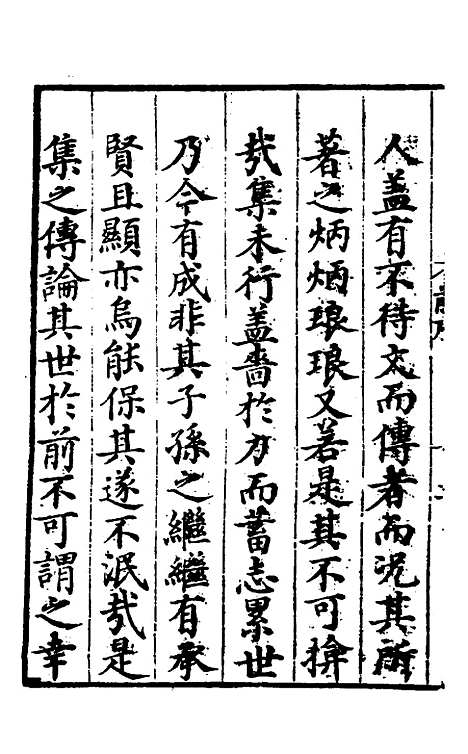 人蓋有不待文而傳者而况其所
著之炳炳琅琅又若是其不可揜
㢤集未行蓋嗇於力而蓄志累世
乃今有成非其子孫之繼繼有承
賢且顯亦烏能保其遂不泯㢤是
集之傳論其世於前不可謂之幸